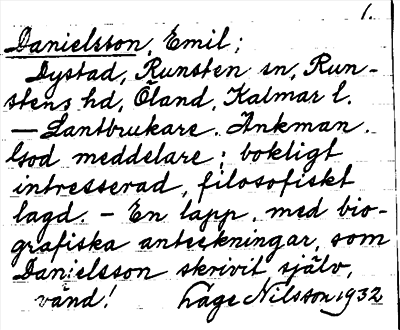 1.
Danielsson, Emil;
Dystad, Runsten sn, Run-
stens hd, Öland, Kalmar l.
— Lantbrukare. Änkman.
God meddelare; bokligt
intresserad, filosofiskt
lagd. — En lapp, med bio-
grafiska anteckningar, som
Danielsson skrivit själv,
vänd! Låge Nilsson 1932